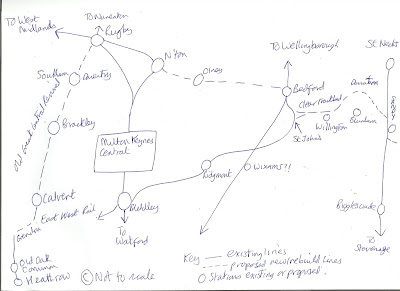 To West
Midlands
To Nuneaton
Rugby
N'ton
To Wellingborough
St Neots
Southam
Daventry
Olney
Bedford
Old Great Central Revived
Brackley
Milton Keynes
Central
St Johns
Willington
Blunham
Ridgmont
Wixams?!
Calvert
East West Rail
Bletchley
Biggleswade
To
Watford
To
Stevenage
Old Oak
Common
Heathrow
© Not to scale
Key — existing lines
---- proposed new/rebuild lines
O Stations existing or proposed.